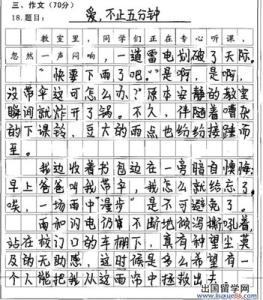 三、作文（70分）
18.题目： 爱，不止五分钟
教室里，同学们正在专心听课，
忽然一声闷响，一道雷电划破了天际。
“快要下雨了吧。”“是啊，是啊，
没带伞这可怎么办？”原本安静的教室
瞬间就炸开了锅。不久，伴随着嘈杂
的下课铃，豆大的雨点也纷纷接踵而
至。
我边收着书包边在一旁暗自懊悔：
早上爸爸叫我带伞，我怎么就给忘了
唉，一场雨中漫步 是不可避免了。
雨和闪电仍牵不断地 着
站在校门口的车棚下，真有种望尘莫
及的无助感，这时候是多么希望有一
个人能把我从这雨帘中拯救出去
出国留学网
www.liuxue86.com